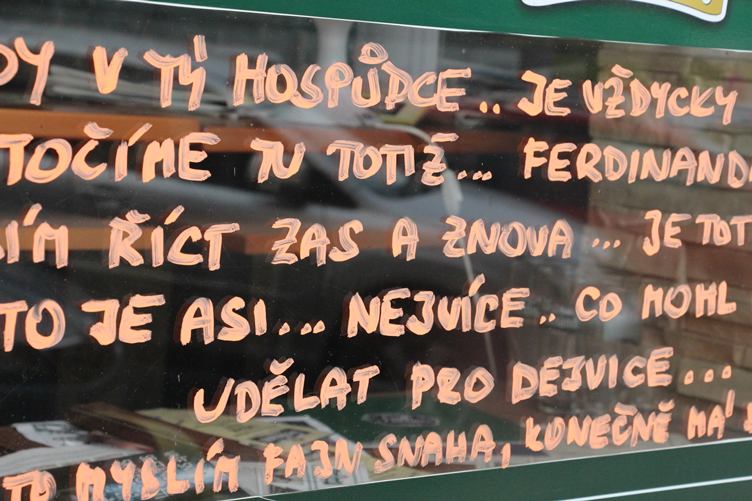 DY V TÝ HOSPŮDCE.. JE VŽDYCKY
TOČÍME TU TOTIŽ... FERDINANDA
ÍM ŘÍCT ZAS A ZNOVA... JE TOT
TO JE ASI... NEJVÍCE.. CO MOHL
UDĚLAT PRO DEJVICE...
TO MYSLÍM FAJN SNAHA, KONEČNĚ MÁ